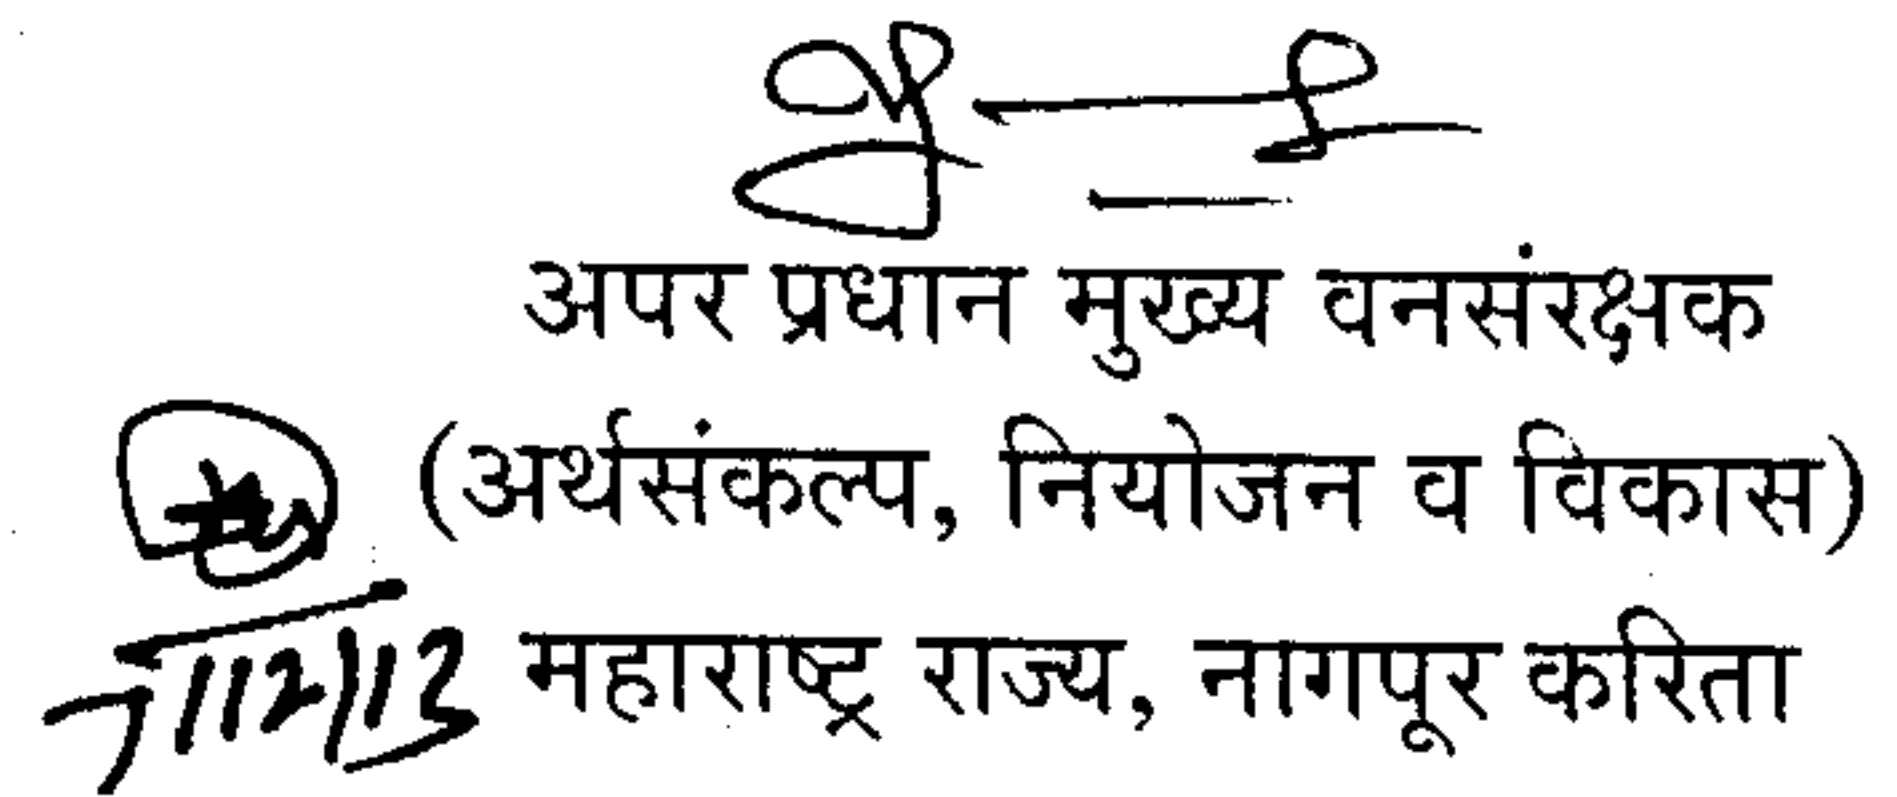 अपर प्रधान मुख्य वनसंरक्षक
(अर्थसंकल्प, नियोजन व विकास)
महाराष्ट्र राज्य, नागपूर करिता